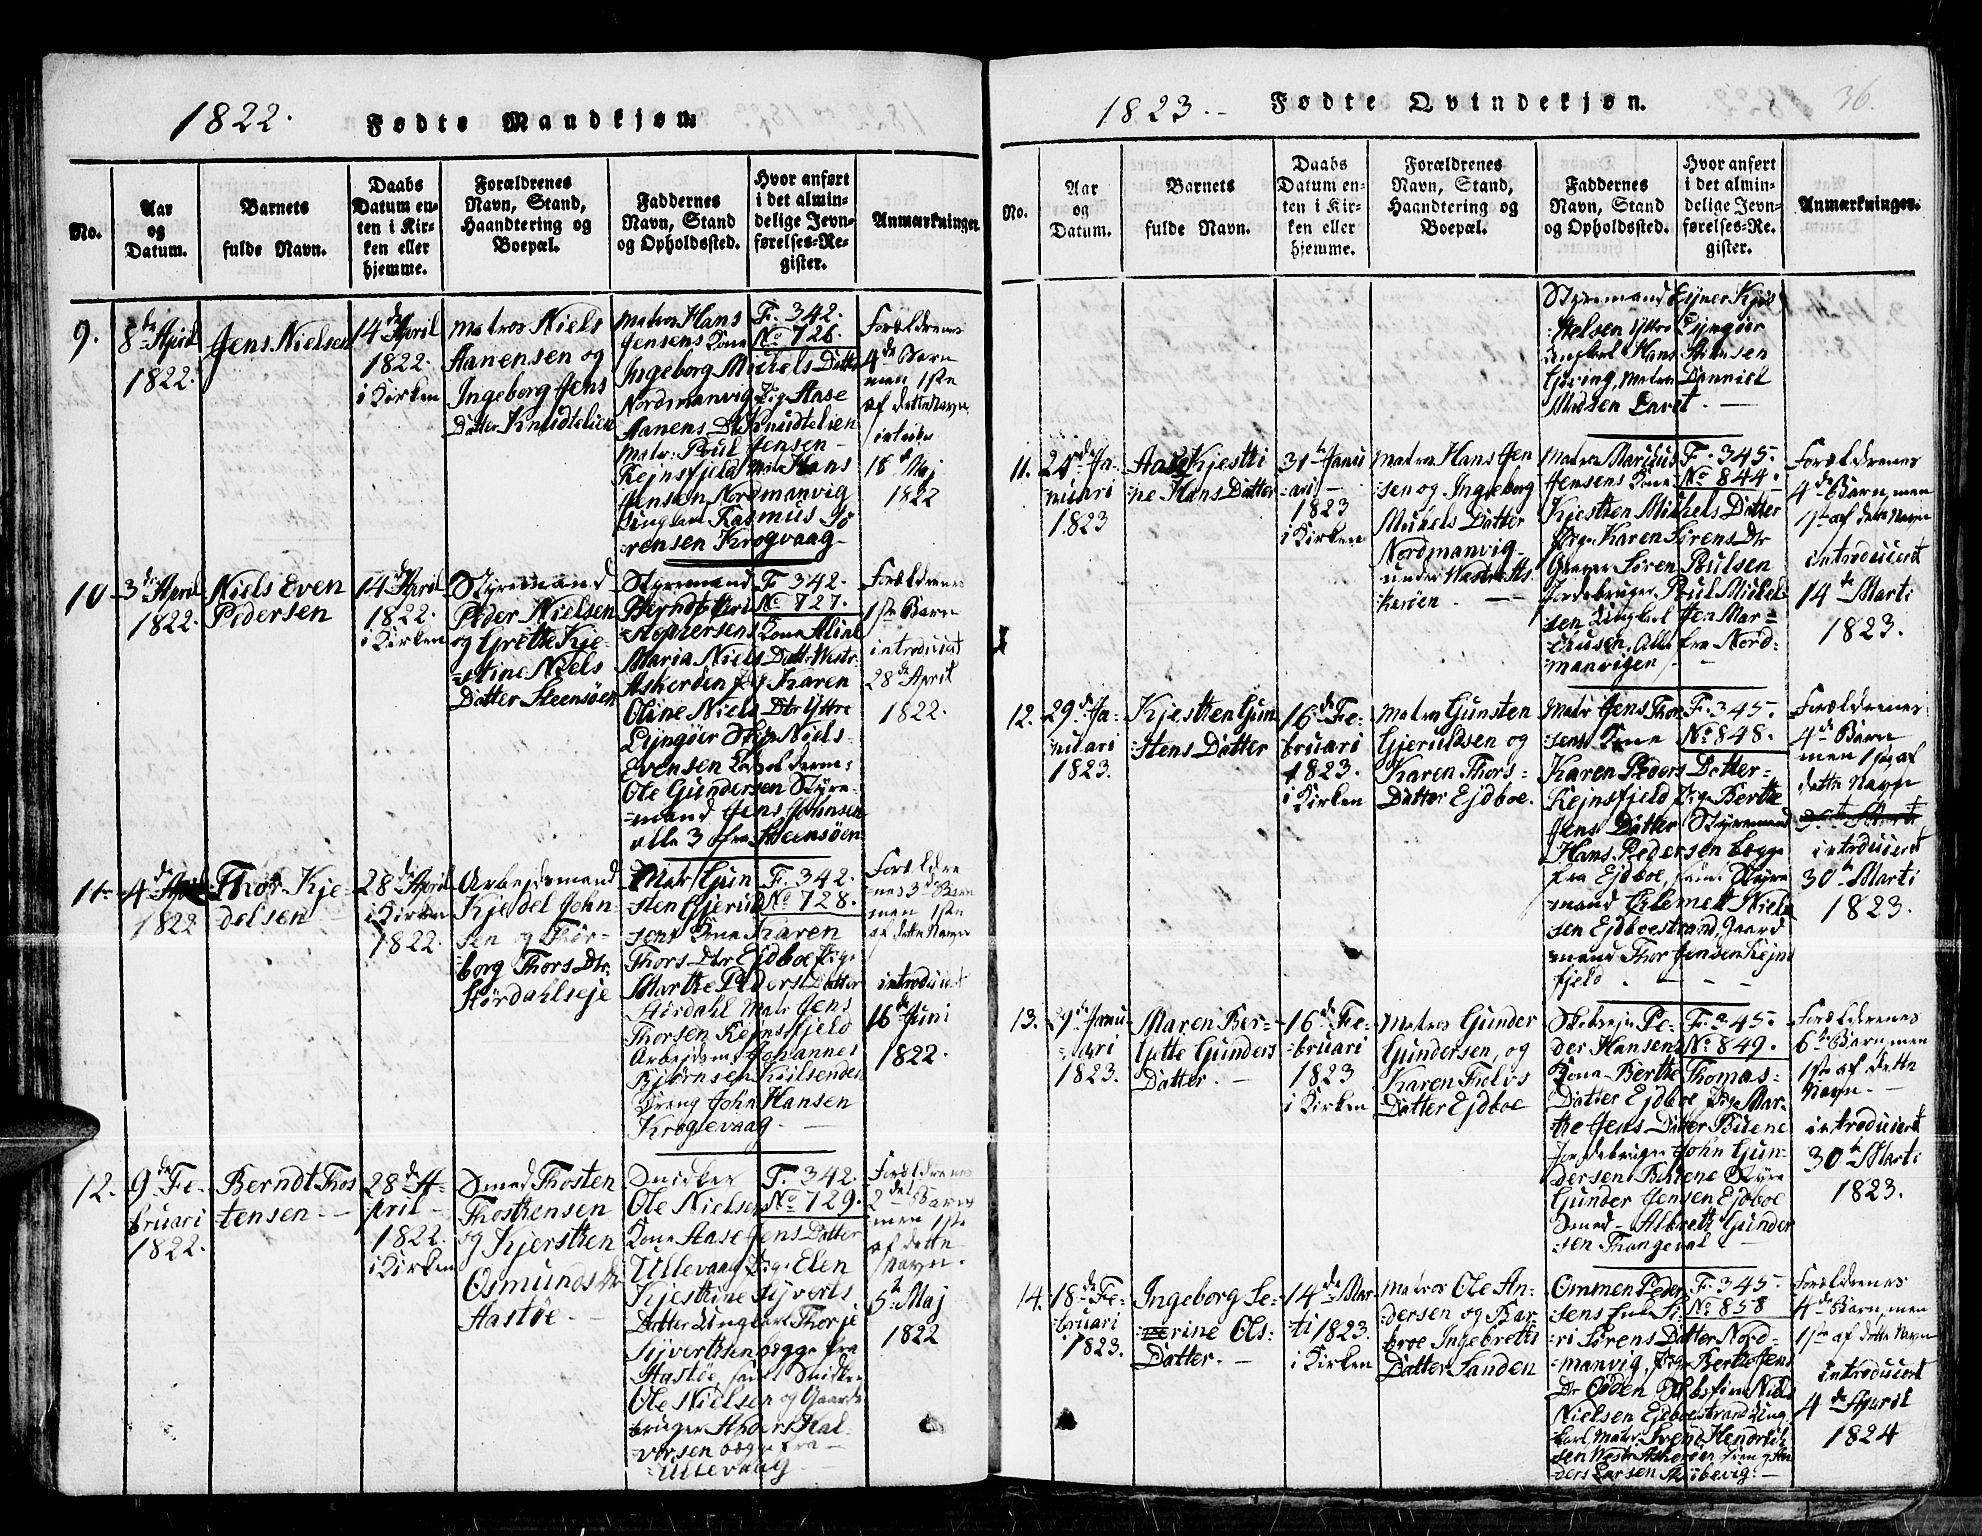 1822.
Fødte Mandkjøn.
No.
Aar
og
Datum.
Barnets
fulde Navn.
Daabs
Datum en-
ten i Kir-
ken eller
hjemme.
Forældrenes
Navn, Stand,
Haandtering og
Boepæl.
Faddernes
Navn, Stand
og Opholdssted.
Hvor anført
i det almin-
delige Jevn-
førelses-Re-
gister.
Anmærkninger.
9.
8de April
1822.
Jens Nielsen
14de April
1822.
i Kirken
Matros Niels
Aanensen og
Ingeborg Jens
Datter Knudtelien
Matros Hans
Jensens Kone
Ingeborg Michels Datter
Nordmanvig Pige Aase
Aanens Dtr Knudtelien
Matr: Poul Jensen
Rejnsfjeld Matr Hans
Jensen Nordmanvig
Ungkarl Rasmus Sö
rensen Krogvaag
F. 342.
No 726.
Forældrenes
4de Barn
men 1ste
af dette Navn
18de Maj
1822
10
3de April
1822.
Niels Even
Pedersen
14de April
1822.
i Kirken
Styrmand
Peder Nielsen
og Grethe Kje-
stine Niels
Datter Steensöen
Styremand
Berndt Kri
stophersens Kone Aline
Maria Niels Dattr Westr-
Askerøen Pig Karen
Oline Niels Dtr Yttre
Lijngöer Skip Niels
Evensen
Ole Gundersen Styre-
mand Jens Johnsen
alle 3 fra Steensöen
F. 342.
No 727.
Forældrenes
1ste Barn
introduceret
28de April
1822.
11
4de April
1822
Thor Kje-
delsen
28de April
i Kirken
1822.
Arbejdsmand
Kjedel John-
sen og Thor-
borg Thors Dtr.
Hördahlseje
Matr Gun
sten Gjerul
sens Kone Karen
Thors Dtr Ejdboe Pige
Marthe Peders Datter
Hördahl Matr Jens
Thorsen Rejnsfjeld
Arbejdsm Johannes
Björnsen Kiilsenden
Dreng John Hansen
Krogevaag
F. 342.
No 728.
Forældre
nes 3de Barn
men 1ste
af dette Navn
introduceret
16de Juni
1822.
12.
9de Fe-
bruari
1822.
Berndt Thos
tensen
28de A-
pril
1822.
i Kirken
Smed Thosten
Thostensen
og Kjersthen
Osmunds Dtr
Aastöe
Snidker
Ole Nielsen
Kone Aase Jens Datter
Ullevaag Pige Elen
Kjestine Sijverts
Datter Ungkarl Thorje
Sijvertsen begge fra
Aastöe, samt Snidker
Ole Nielsen og Gaard
bruger Anders Hal-
vorsen begge fra
Ullevaag
F. 342.
No 729.
Forældrenes
2det Barn
men 1ste
af dette
Navn.
5te Maj
1822
1823.
Fødte Qvindekjøn.
36.
No.
Aar
og
Datum.
Barnets
fulde Navn.
Daabs
Datum en-
ten i Kir-
ken eller
hjemme.
Forældrenes
Navn, Stand,
Haandtering og
Boepæl.
Faddernes
Navn, Stand
og Opholdssted.
Hvor anført
i det almin-
delige Jevn-
førelses-Re-
gister.
Anmærkninger.
Styremand Ejner Kjøs
Nielsen Yttre Lijngöer
Ungkarl Hans
Matros Danniel
Madsen
11.
Januari
1823
Aase Kjesti
ne Hans Datter
31te Janu
ari
1823
i Kirken
Matros Hans Jen
sen og Ingeborg
Michels Datter
Nordmanvig
under Westre As
keröen.
Matros Marcus
Jensens Kone
Kjesthen Michels Datter
Pige Karen Sörens Dtr
Sören Poulsen
Jordebruger Poul Mickel
sen Ungkarl Jen Mar-
cusen, Alle fra Nord-
manvigen
F. 345.
No 844.
Forældrenes
4de Barn, men
1ste af dette Navn
introduceret
14de Marti
1823.
12.
29de Ja-
nuari
1823.
Kjesthen Gun
stens Datter
16de Fe-
bruari
1823.
i Kirken
Matros Gunsten
Gjeruldsen og
Karen Thors-
Datter Ejdboe.
Matr Jens Thor
sens Kone
Karen Peders Datter
Rejnsfjeld Pige Berthe
Jens Datter Styremand
Hans Pedersen begge
fra Ejdboe, samt Styre
mand Clement Niels
sen Ejdboestrand, Gaard
mand Thor Jensen Rejns
fjeld
F. 345.
No 848.
Forældrenes
4de Barn
men 1ste af
dette Navn
introduceret
30te Marti
1823.
13.
29de Janu
ari
1823.
Maren Ber-
gitte Gunders
Datter.
16de Fe-
bruari
1823
i Kirken
Matros Gunder
Gundersen, og
Karen Tielvs
Datter Ejdboe
Pe-
der Hansens
Kone Berthe Thomas-
Datter Ejdboe Pige Mar-
the Jens Datter Buene
Jordebruger John Gun-
dersen Buene Styre
Gunder Jensen Ejdboe
Smed Albreth Gunder
sen Thangevald
F. 345.
No 849.
Forældrenes
6te Barn, men
1ste af dette
Navn.
introduceret
30te Marti
1823.
14.
18de Fe-
bruari
1823.
Ingeborg Se-
verine Ols-
Datter.
14de Mar
ti 1823.
i Kirken
Matros Ole An-
dersen og Bar-
broe Ingebreths
Datter Sanden
Ommen Peder
sens Enke Si
ri Sörens Datter Nord-
manvig, Pige Berthe Jens
Dr Odden
Nielsen Ejdboestrand Ung
karl, Matr. Svend Hendrich
sen Westr. Askeröen
ders Larsen Skibevig.
F. 345.
No 858
Forældrenes
4de Barn, men
1ste af dette Navn
introduceret
4de April
1824